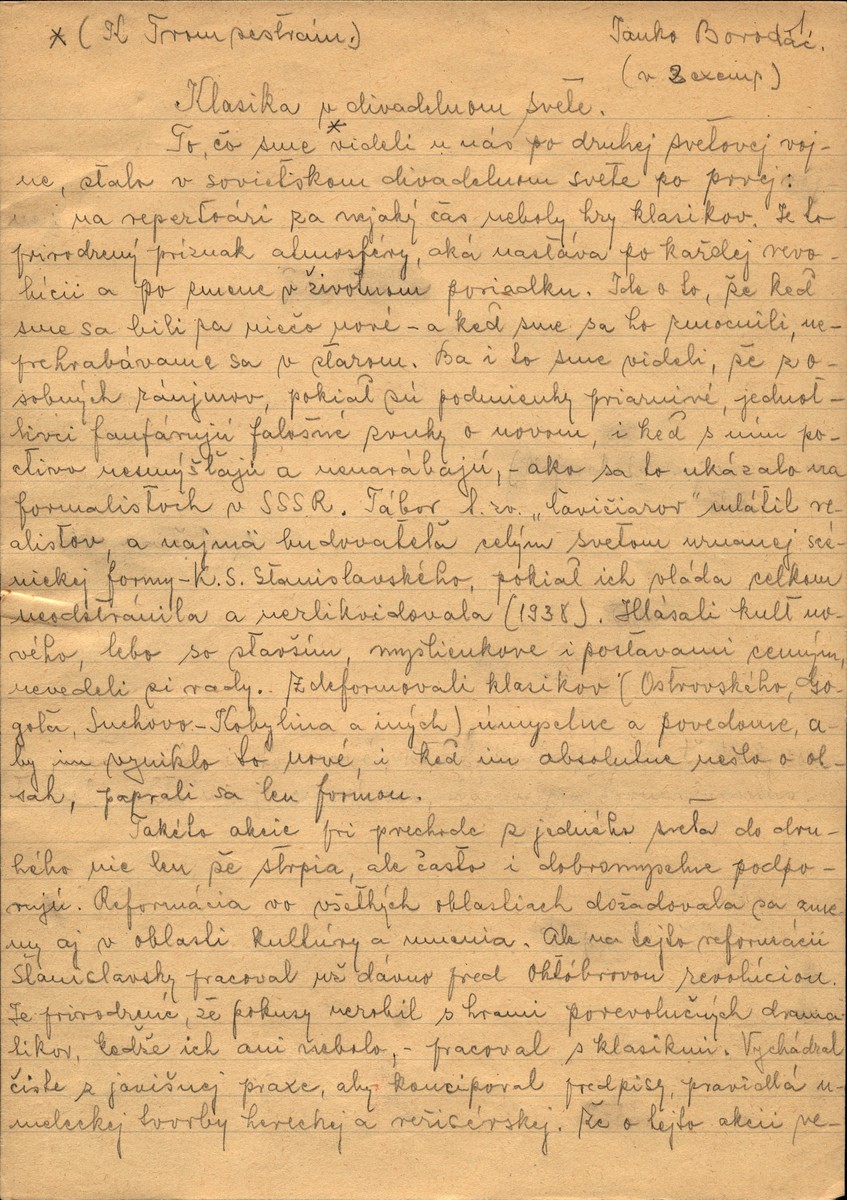 * (K Trom sestrám.) Janko Borodáč. 1
(v 2 exemp)
Klasika v divadelnom svete.
To, čo sme * videli u nás po druhej svetovej voj-
ne, stalo v sovietskom divadelnom svete po prvej:
na repertoári za nejaký čas neboly hry klasikov. Je to
prirodzený príznak atmosféry, aká nastáva po každej revo-
lúcii a po zmene v životnom poriadku. Ide o to, že keď
sme sa bili za niečo nové – a keď sme sa ho zmocnili, ne-
prehrabávame sa v starom. Ba i to sme videli, že z o-
sobných záujmov, pokiaľ sú podmienky priaznivé, jednot-
livci fanfárujú falošné zvuky o novom, i keď s ním po-
ctivo nesmýšľajú a nenarábajú, – ako sa to ukázalo na
formalistoch v SSSR. Tábor t. zv. „ľavičiarov" mlátil re-
alistov, a najmä budovateľa celým svetom uznanej scé-
nickej formy – K. S. Stanislavského, pokiaľ ich vláda celkom
neodstránila a nezlikvidovala (1938). Hlásali kult no-
vého, lebo so starším, myslienkove i postavami cenným,
nevedeli si rady.. Zdeformovali klasikov (Ostrovského, Go-
goľa, Suchovo-Kobylina a iných) úmyselne a povedome, a-
by im vzniklo to nové, i keď im absolutne nešlo o ob-
sah, paprali sa len formou.
Takéto akcie pri prechode z jedného sveta do dru-
hého nie len že strpia, ale často i dobromyselne podpo-
rujú. Reformácia vo všetkých oblastiach dožadovala sa zme-
ny aj v oblasti kultúry a umenia. Ale na tejto reformácii
Stanislavsky pracoval už dávno pred Októbrovou revolúciou.
Je prirodzené, že pokusy nerobil s hrami porevolučných drama-
tikov, keďže ich ani nebolo, – pracoval s klasikmi. Vychádzal
čiste z javišnej praxe, aby koncipoval predpisy, pravidlá u-
meleckej tvorby hereckej a režisérskej. Že o tejto akcii ve-